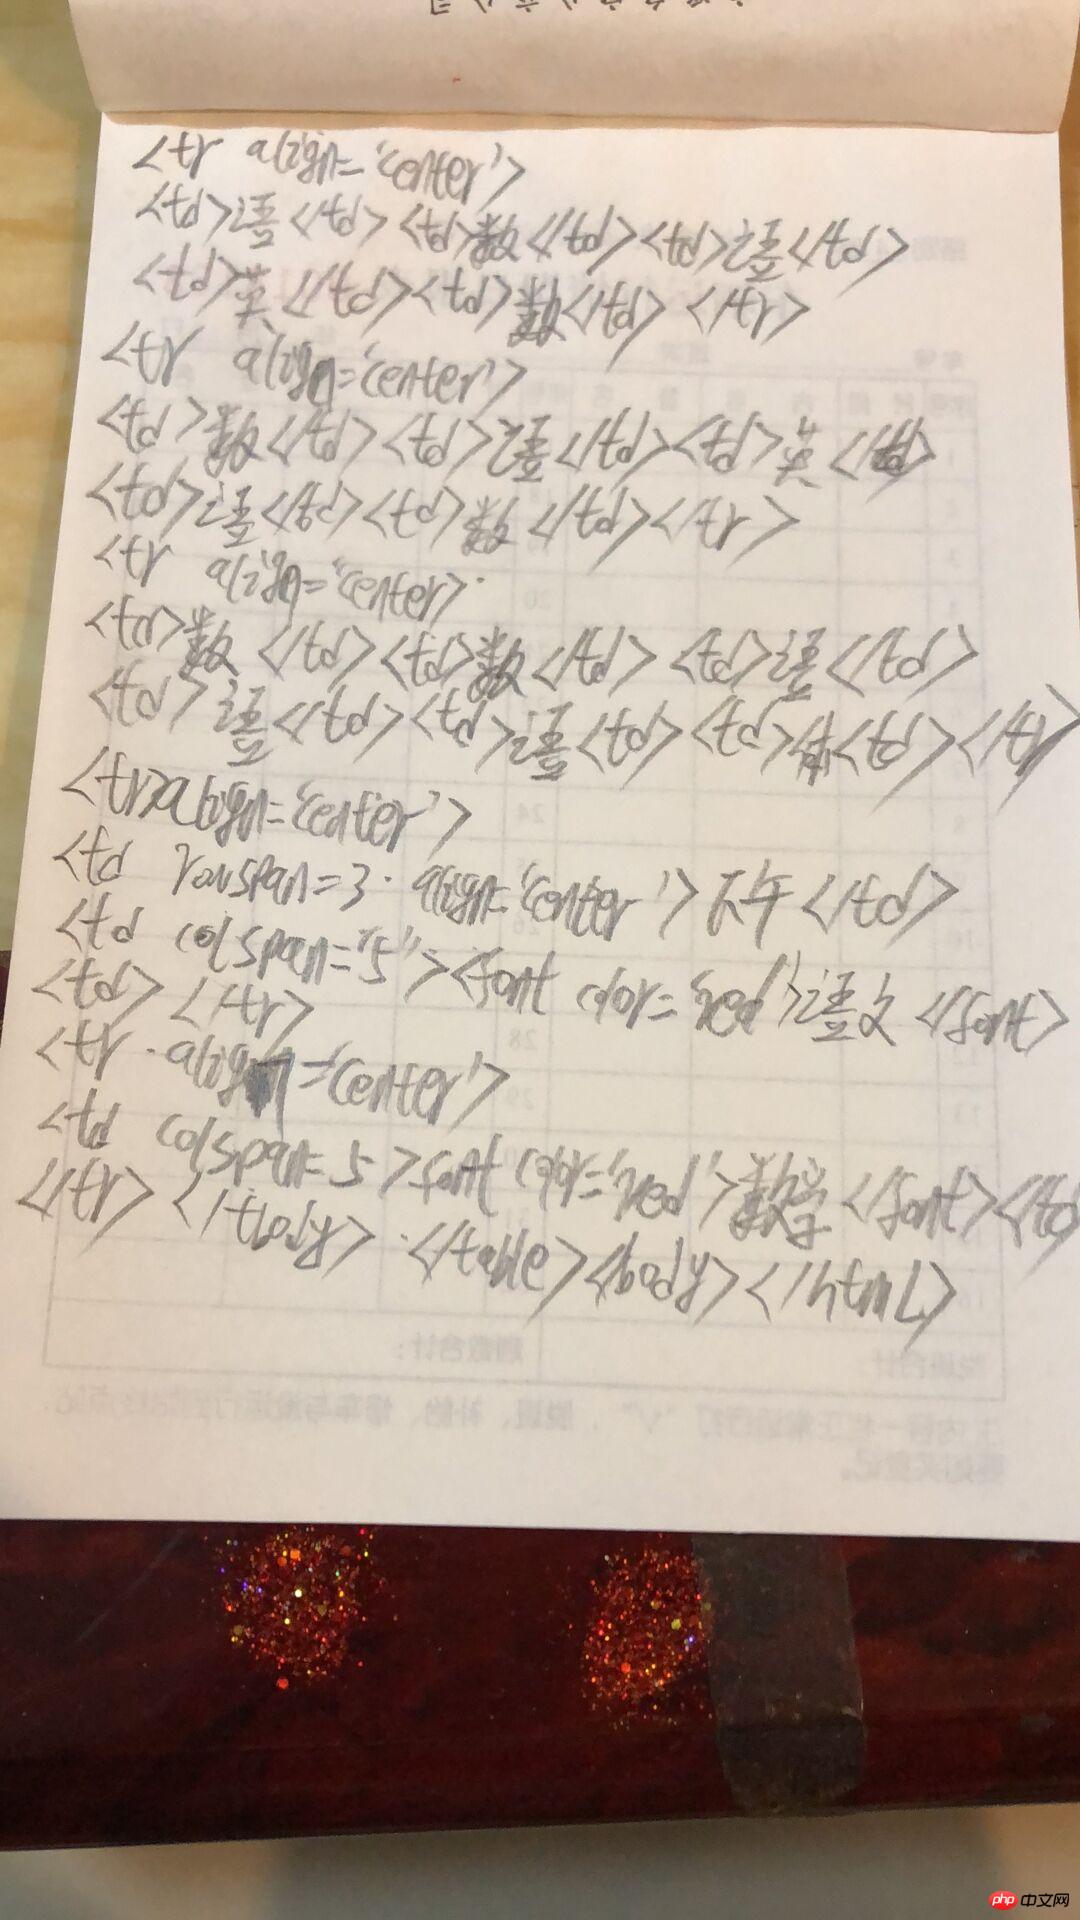 <tr align='center'>
<td>语</td><td>数</td><td>语</td>
<td>英</td><td>数</td></tr>
<tr align='center'>
<td>数</td><td>语</td><td>英</td>
<td>语</td><td>数</td></tr>
<tr align='center>
<td>数</td><td>数</td><td>语</td>
<td>语</td><td>语<td><td>体<td></tr>
<tr>align='center'>
<td rowspan=3 align='center'>下午</td>
<td colspan="5"><font color='red'>语文</font>
<td></tr>
<tr align='center'>
<td colspan=5>font color='red'>数学</font></td
</tr></tbody></table><body></html>
24
28
php 中文网